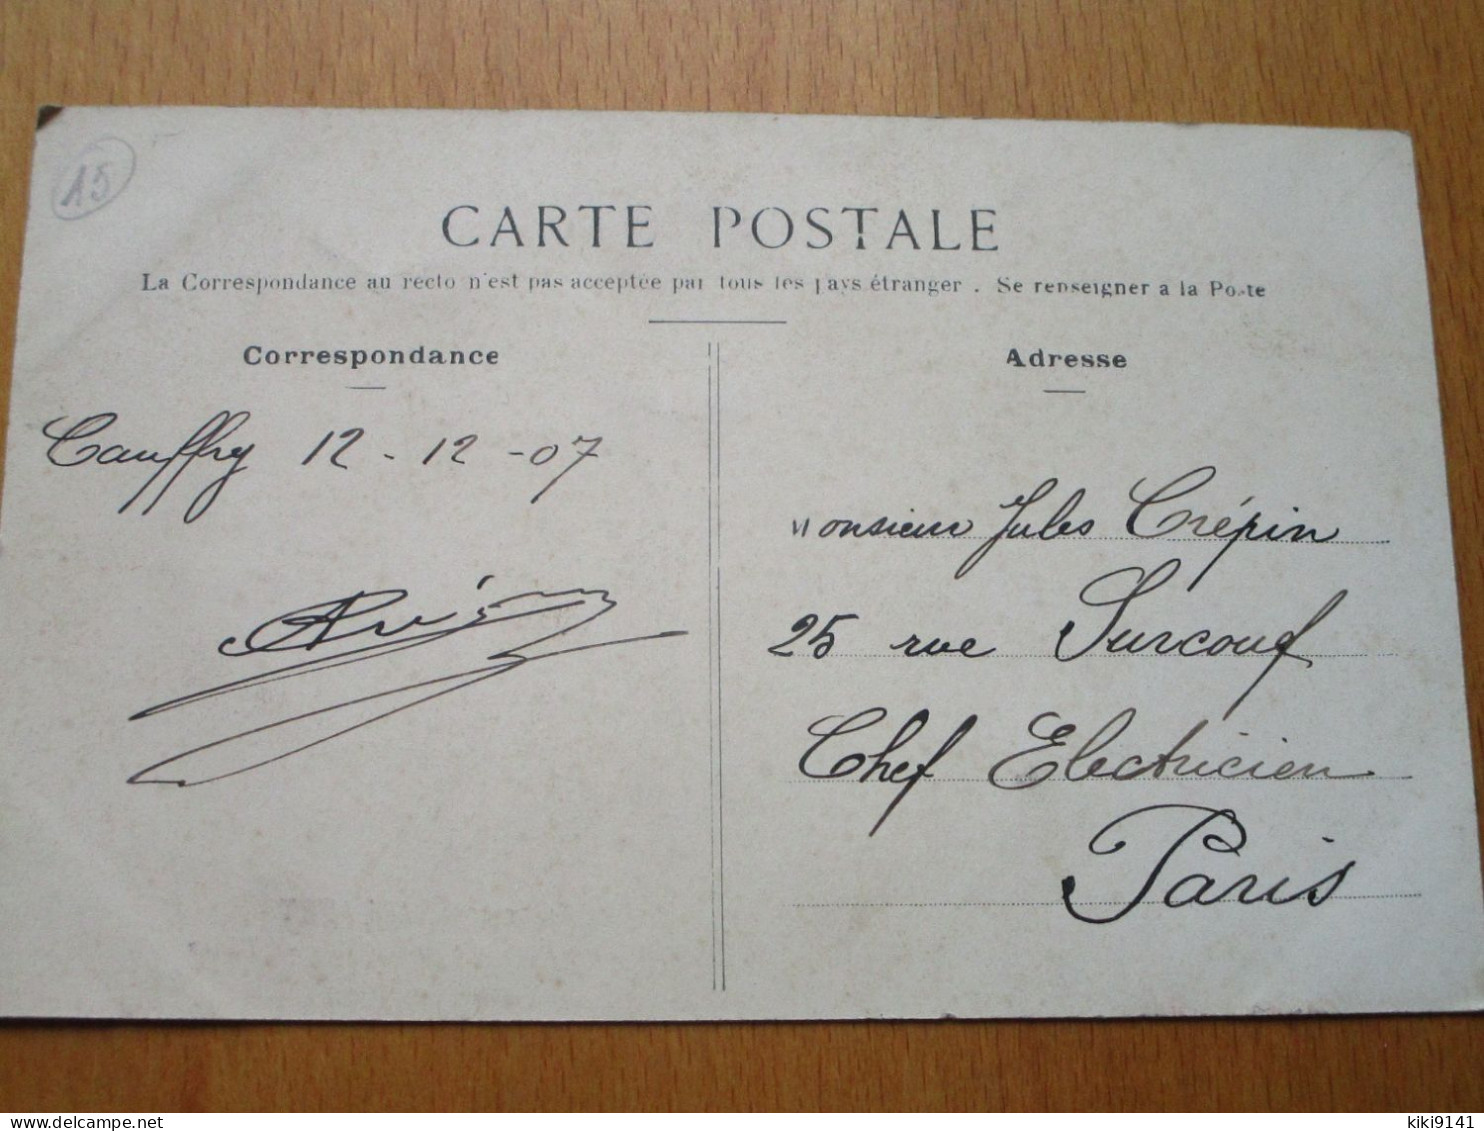 15
CARTE POSTALE
La Correspondance au recto n'est pas acceptée par tous les pays étranger . Se renseigner a la Poste
Correspondance
Cauffry 12-12-07
Adresse
Monsieur Jules Crépin
25 rue Surcouf
Chef Electricien
Paris
www.delcampe.net
kiki9141